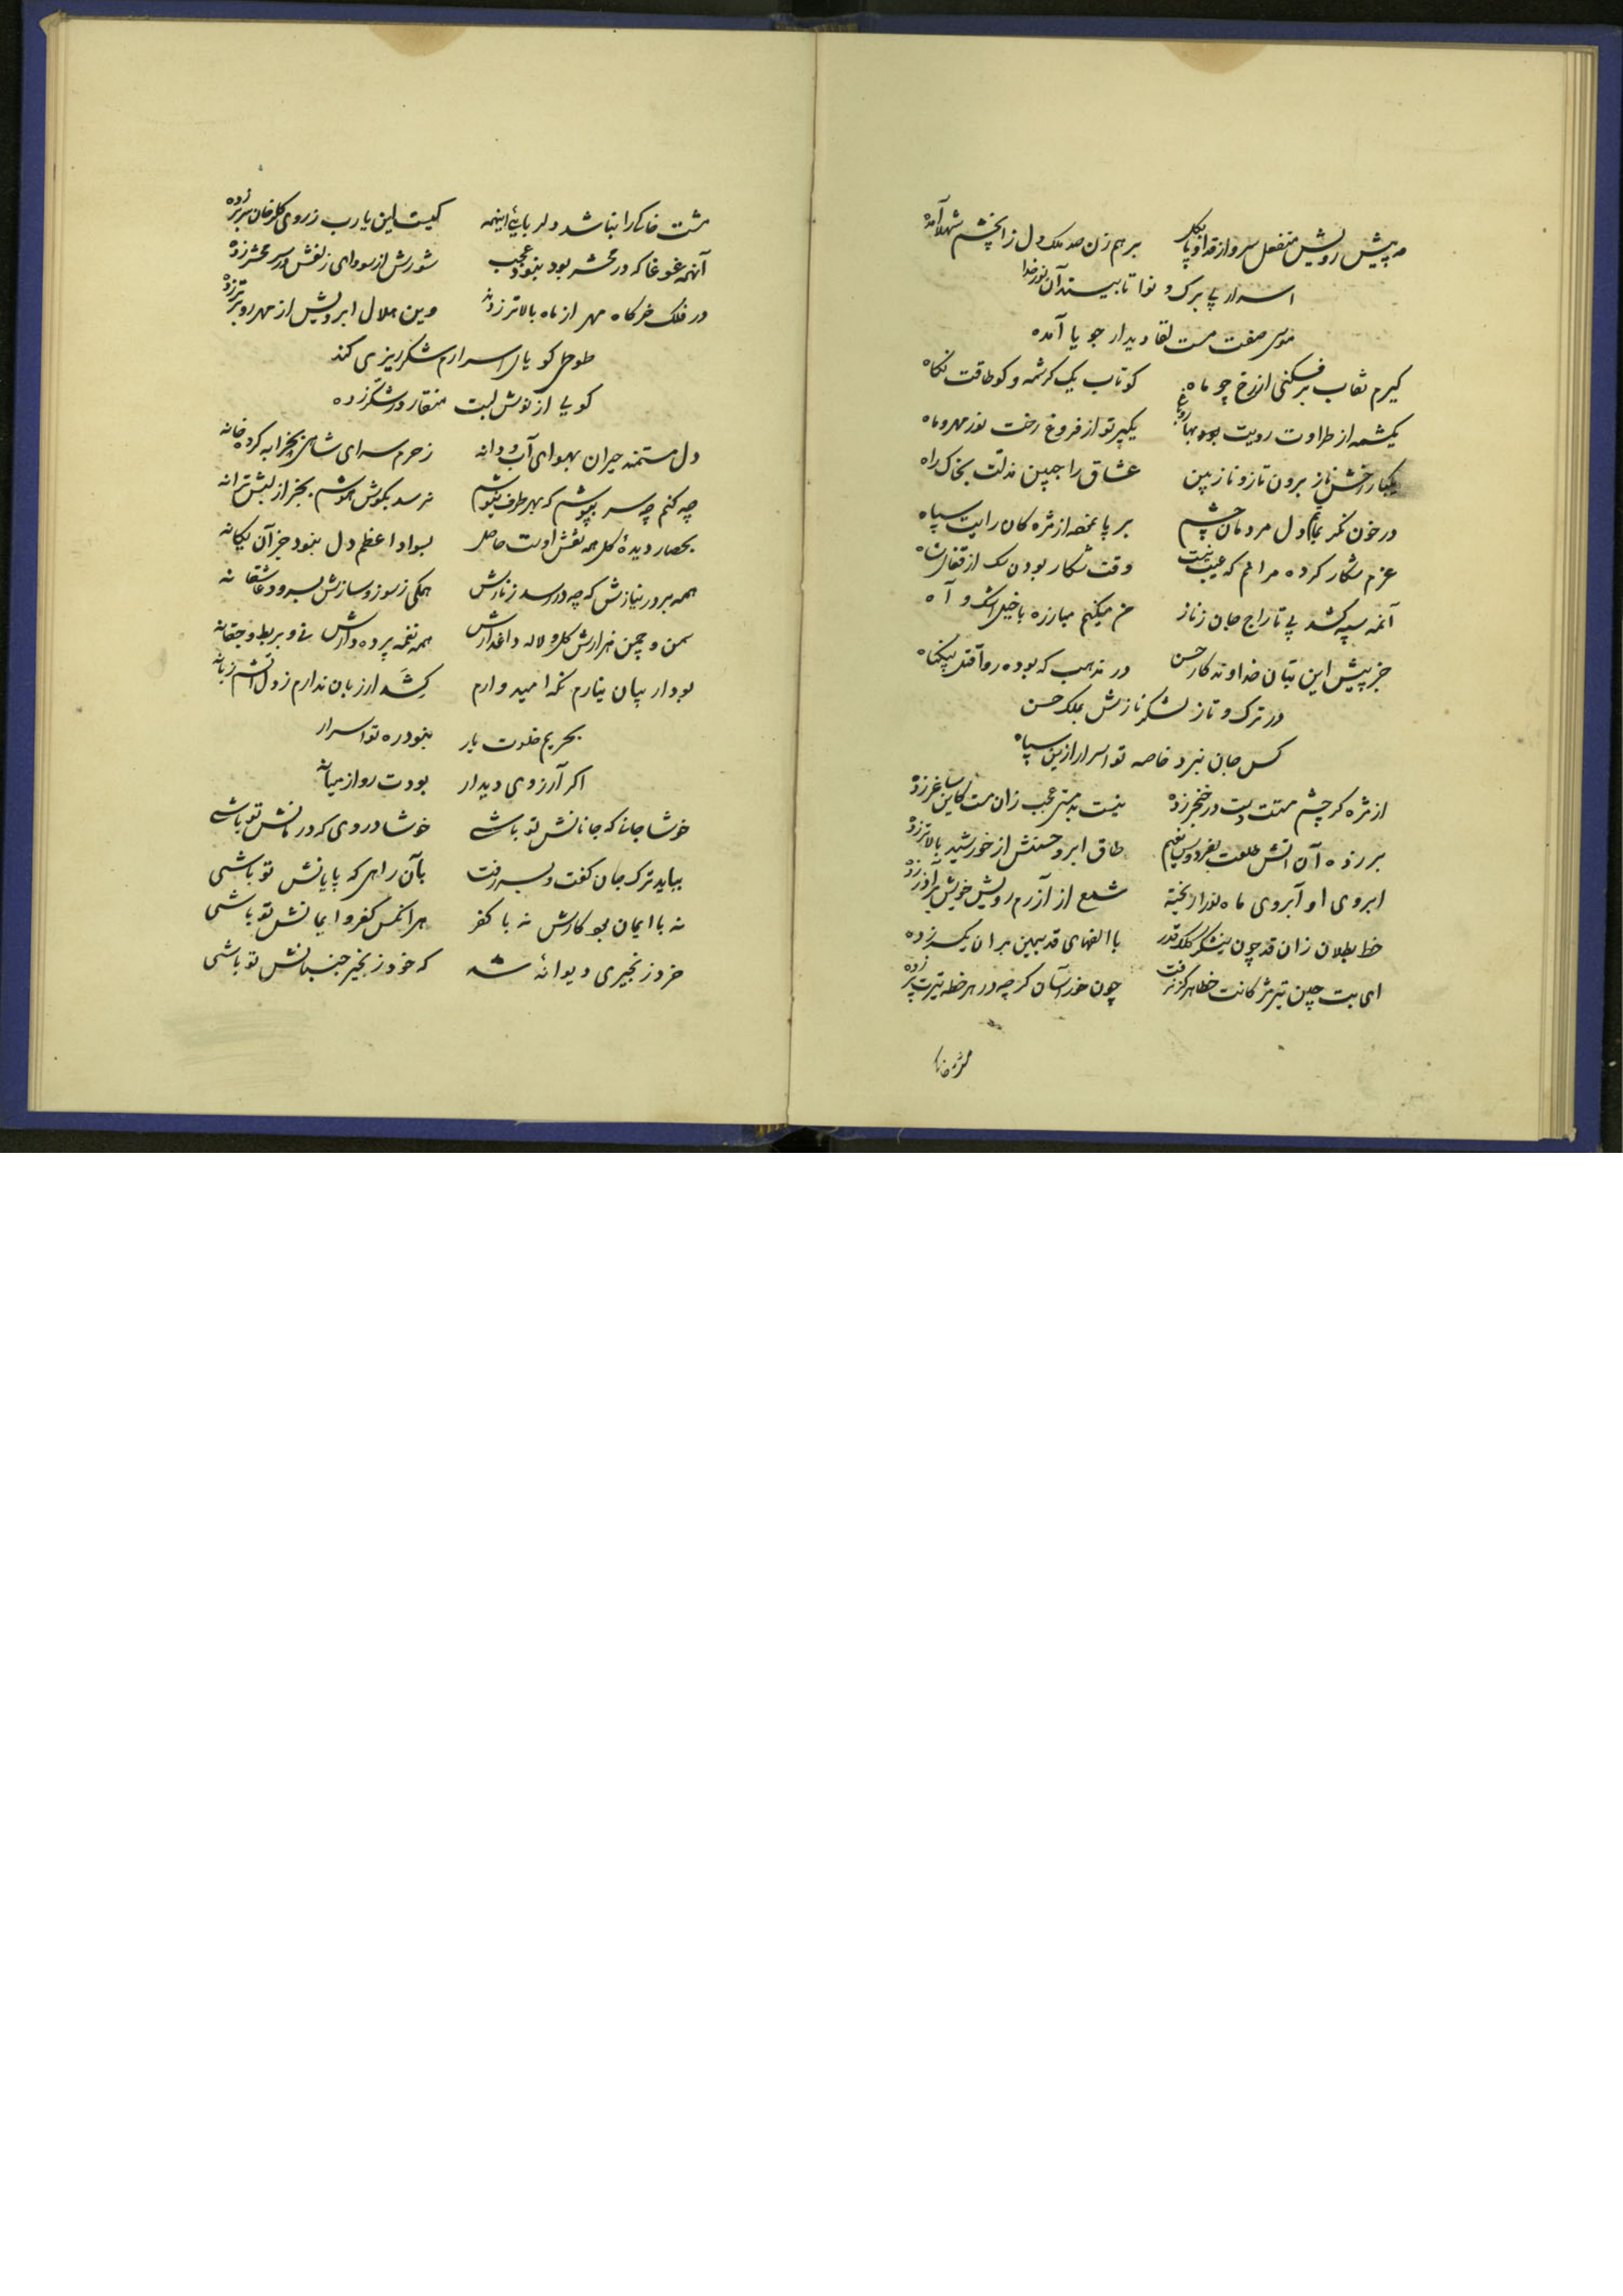 مه پیش رویش منفعل سرو از قد او پا بگل برهم زن صد ملک دل زان چشم شهلا آمده
اسرار بی برک و نوا تا بیند آن نور خدا
موسی صفت مست لقا دیدار جویا آمده
کیرم نقاب برفکنی از رخ چو ماه کو تاب یک کرشمه و کو طاقت نکاه
یکشمه از طراوت رویت بود بهار یکپرتو از فروغ رخت نور مهر و ماه
یکبار رخش ناز برون تاز و ناز بین عشاق را جبین مذلت بخاک راه
در خون نکر دل مردمان چشم بر پا نمود از مژه کان رایت سپاه
عزم شکار کرده مرا هم که عیب نیست وقت شکار بودن سک از قفای شاه
آنمه سپه کشد پی تاراج جان ز ناز من میکنم مبارزه با خیل اشک و آه
جز پیش این بتان خداوندکار حسن در مذهب که بوده روا قتل بیکناه
در ترک و تاز لشکر نازش بملک حسن
کس جان نبرد خاصه تو اسرار ازین سپاه
از مژه کر چشم مستت دست در خنجر زده نیست بدمستی عجب زان مست کاین ساغر زده
بر زده آن آتش طلعت بفردوس نعیم طاق ابرو حسنش از خورشید بالاتر زده
ابروی او آبروی ماه نور ریخته شمع از آزرم رویش خویش بر آذر زده
خط بطلان زان قد چون نیشکر کلک قدر با الفهای قد سیمین بران یکسر زده
ای بت چین تیر مژکانت خطا هرکز نرفت چون خور آسان کرچه در هر خطه تیرت پر زده
مشت خاک
مشت خاک را نباشد دلربائی اینهمه کیست این یارب ز روی کلرخان سر بر زده
آنهمه غوغا که در محشر بود نبود عجب شورش از سودای زلفش در سر محشر زده
در فلک خرکاه مهر از ماه بالاتر زدند وین هلال ابرویش از مهر بر تر زده
طوطی کویای اسرارم شکرریزی کند
کویی از نوش لبت منقار در شکر زده
دل مستمند حیران بهوای آب و دانه ز حرم سرای شاهی بخرابه کرده خانه
چه کنم چه سر بپوشم که بهر طرف بکوشم نرسد بکوش هوشم بجز از لبش ترانه
بحصار دیدۀ کل همه نقش اوست حاصل بسواد اعظم دل نبود جز آن یکانه
همه برور نیازش که چه در رسد ز نازش همکی ز سوز و سازش بسرود عاشقانه
سمن و چمن هزارش کل و لاله داغدارش همه نغمه پرده دارش نی و بربط و چغانه
بود ار بیان نیارم نکه امیدوارم کشد ار زبان ندارم ز دل آتشم زبانه
بحریم خلوت یار نبود ره تو اسرار
اکر آرزوی دیدار بودت رو از میانه
خوشا جانی که جانانش تو باشی خوشا دردی که درمانش تو باشی
بباید ترک جان کفت و بسر رفت بآن راهی که پایانش تو باشی
نه با ایمان بود کارش نه با کفر هر انکس کفر و ایمانش تو باشی
خرد زنجیری دیوانۀ شد که خود زنجیر جنبانش تو باشی